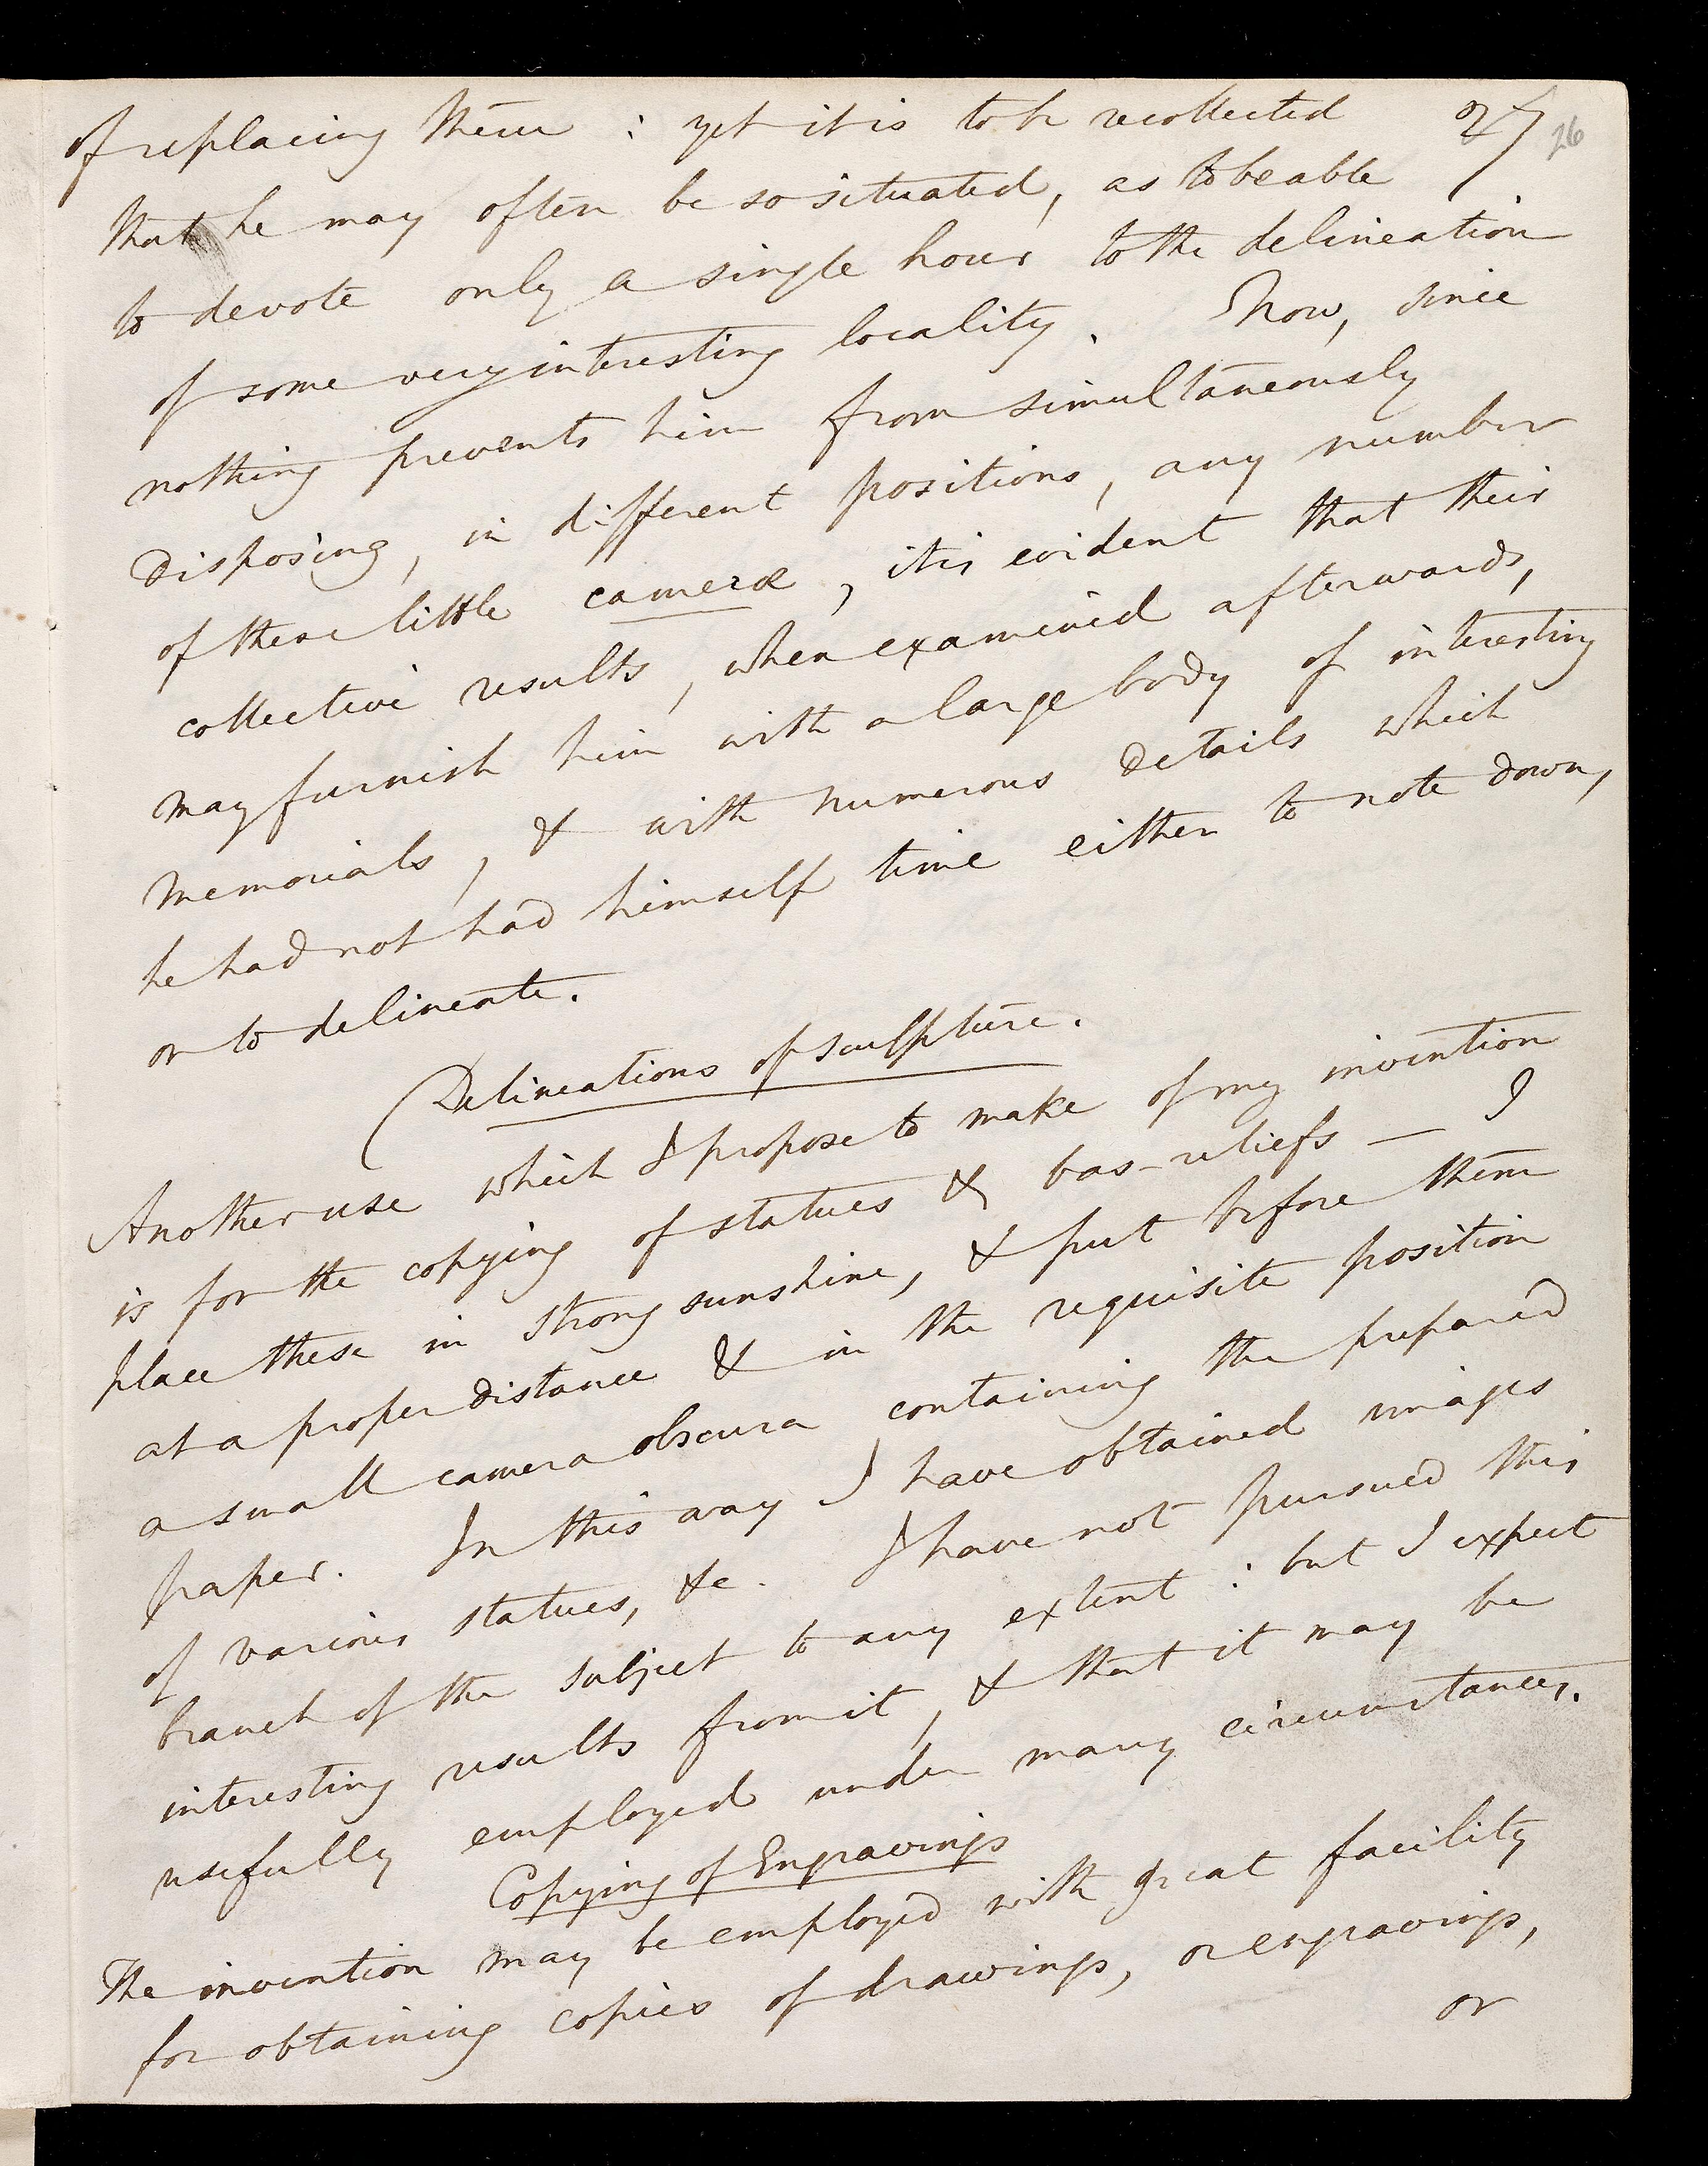 of replacing them : yet it is to be recollected 27 26
that he may often be so situated, as to be able
to devote only a single hour to the delineation
of some very interesting locality. Now, since
nothing prevents him from simultaneously
disposing, in different positions, any number
of these little cameræ, it is evident that their
collective results, when examined afterwards,
may furnish him with a large body of interesting
memorials, & with numerous details which
he had not had himself time either to note down,
or to delineate.
(Delineations of sculpture.
Another use which I propose to make of my invention
is for the copying of statues & bas-reliefs — I
place these in strong sunshine, & put before them
at a proper distance & in the requisite position
a small camera obscura containing the prepared
paper. In this way I have obtained images
of various statues, &c. I have not pursued this
branch of the subject to any extent : but I expect
interesting results from it, & that it may be
usefully employed under many circumstances.
Copying of Engravings
The invention may be employed with great facility
for obtaining copies of drawings, or engravings,
or